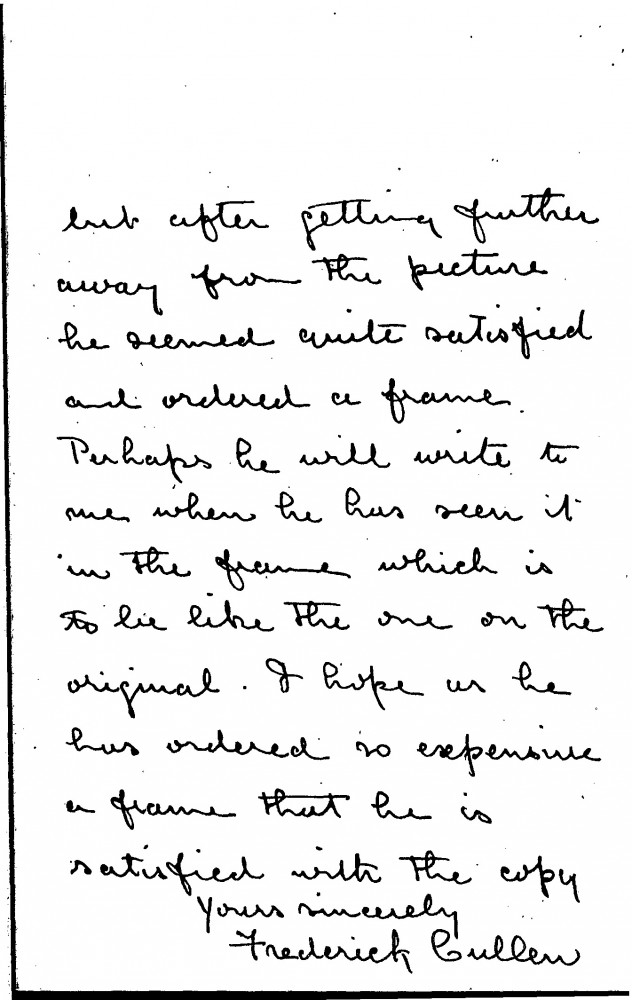 but after getting further
away from the picture
he seemed quite satisfied
and ordered a frame.
Perhaps he will write to
me when he has seen it
in the frame which is
to be like the one on the
original. I hope as he
has ordered so expensive
a frame that he is
satisfied with the copy
Yours sincerely
Frederick Cullen